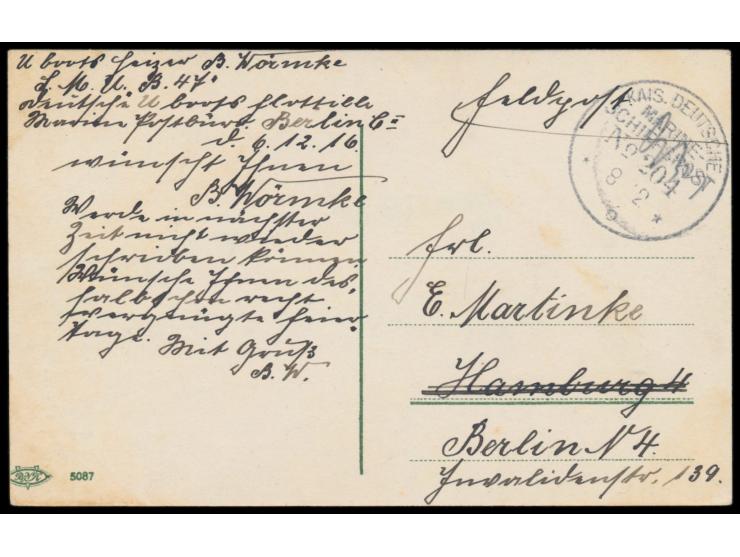 U boots heizer B. Wörmke
S. M. U. B. 47.
Deutsche U boots flottille
Marine Postbüro. Berlin C2
d. 6.12.16.
wünscht Ihnen
B. Wörmke
Werde in nächster
Zeit nicht wieder
schreiben können
Wünsche Ihnen des
halb schon recht
vergnügte Feier-
tage. Mit Gruß
B. W.
5087
Feldpost
KAIS. DEUTSCHE
MARINE-
SCHIFFSPOST
No 204
8 12
Frl.
E. Martinke
Hamburg 4
Berlin N 4.
Invalidenstr. 139.